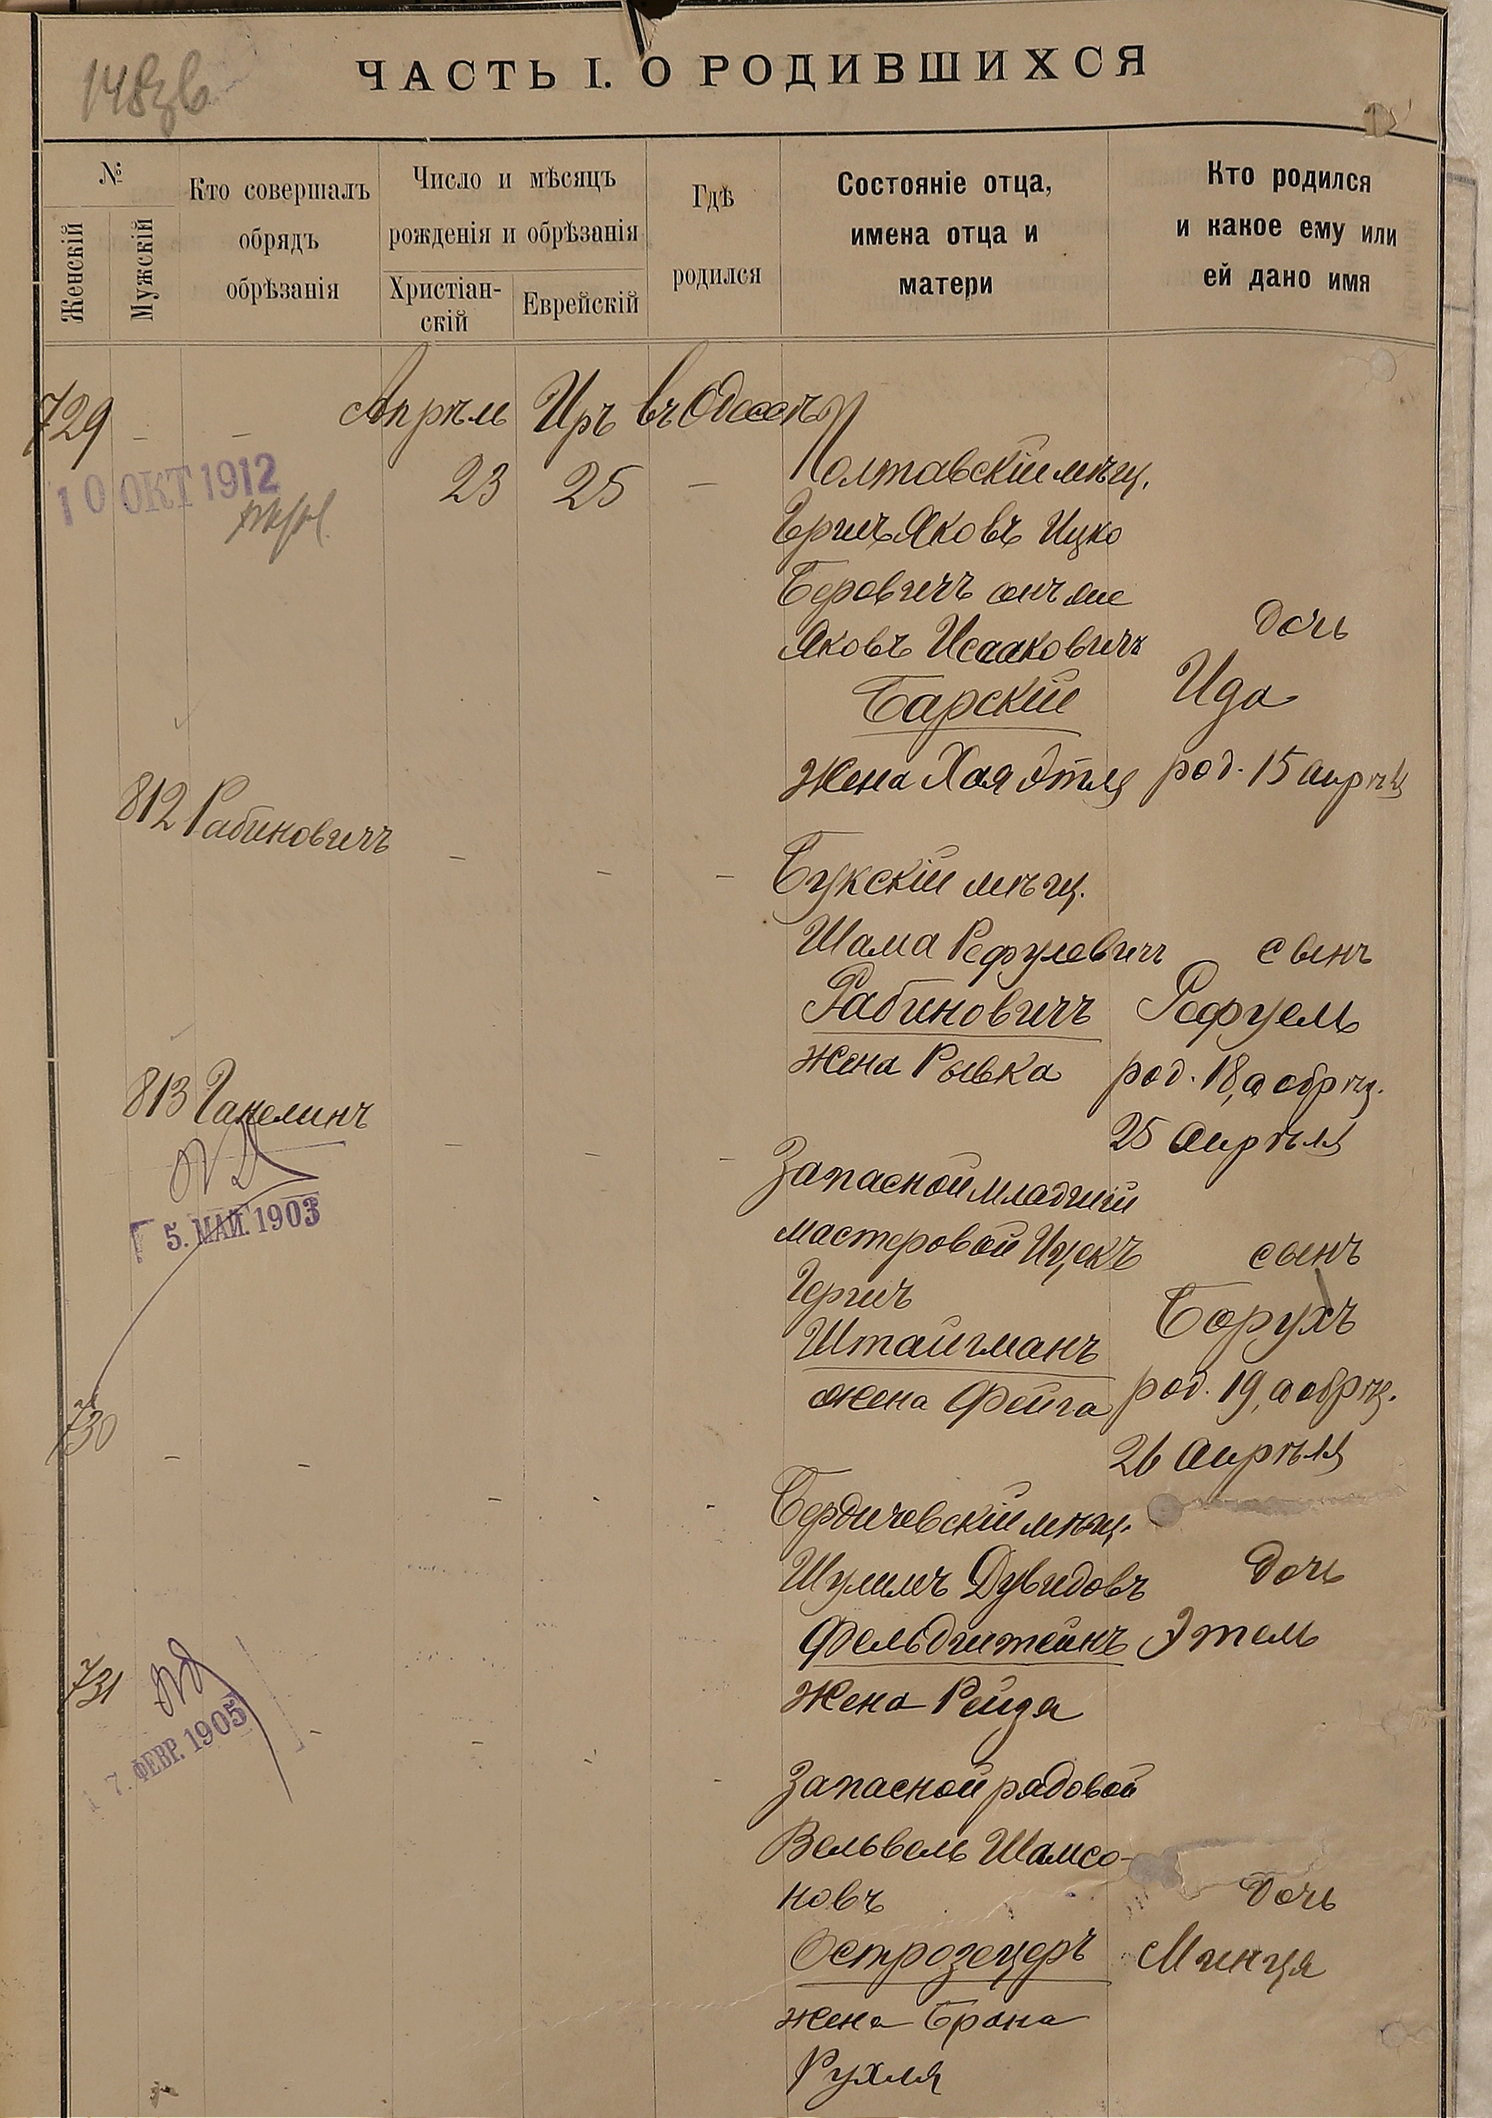 ЧАСТЬ I. О РОДИВШИХСЯ
№
Женскій
Мужскій
Кто совершалъ
обрядъ
обрѣзанія
Число и мѣсяцъ
рожденія и обрѣзанія
Христіан-
скій
Еврейскій
Гдѣ
родился
Состояніе отца,
имена отца и
матери
Кто родился
и какое ему или
ей дано имя
729 - - Апрѣль Иръ въ Одессѣ
23 25 -
10 ОКТ 1912
Полтавскій мѣщ.
Гершъ Яковъ Ицко
Беровичъ онъ же
Яковъ Исааковичъ
Барскій
жена Хая Этля
дочь
Ида
род. 15 апрѣля
812 Рабиновичъ - - -
Букскій мѣщ.
Шама Рефулевичъ
Рабиновичъ
жена Рывка
сынъ
Рефуель
род. 18, а обрѣз.
25 апрѣля
813 Ганелинъ - - -
5. МАЙ. 1903
Запасной младшій
мастеровой Ицекъ
Гершъ
Штайгманъ
жена Фейга
сынъ
Борухъ
род. 19, а обрѣз.
26 апрѣля
730 - - - - -
Бердичевскій мѣщ.
Шулимъ Дувидовъ
Фельдштейнъ
жена Рейзя
дочь
Этель
731 - - - -
7. ФЕВР. 1905
Запасной рядовой
Вельвель Шамсо-
новъ
Острозецеръ
жена Брана
Рухля
дочь
Минця